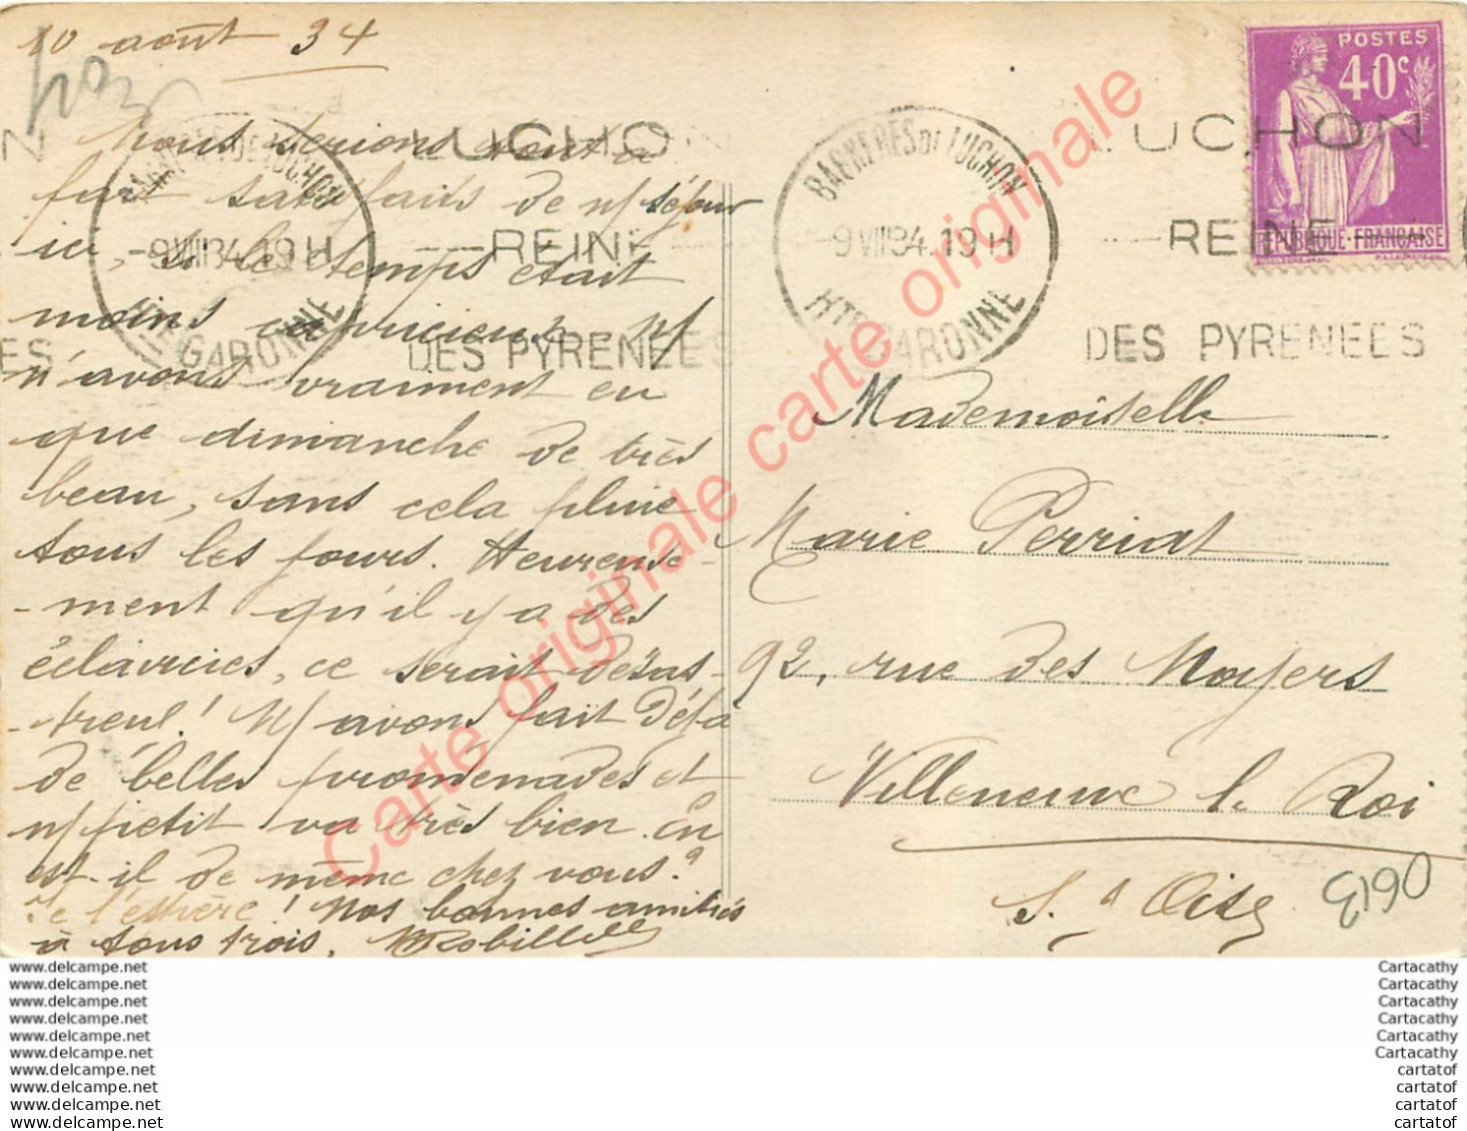 10 août 34
Nous serions tout à
fait satisfaits de n/ séjour
ici, si le temps était
moins capricieux. N/
n'avons vraiment eu
que dimanche de très
beau, sans cela pluie
tous les jours. Heureuse-
-ment qu'il y a des
éclaircies, ce serait désas-
-treux! N/ avons fait déjà
de belles promenades et
n/ petit va très bien. En
est-il de même chez vous?
Je l'espère! Nos bonnes amitiés
à tous trois. MRobillard
BAGNERES DE LUCHON
-9 VIII 34. 19 H
HTE GARONNE
LUCHON
REINE
DES PYRENEES
BAGNERES DE LUCHON
-9 VIII 34. 19 H
HTE GARONNE
LUCHON
REINE
DES PYRENEES
POSTES
40c
REPUBLIQUE·FRANÇAISE
Mademoiselle
Marie Perriat
92, rue des Noyers
Villeneuve le Roi
S. & Oise
E190
Carte originale carte originale
www.delcampe.net
www.delcampe.net
www.delcampe.net
www.delcampe.net
www.delcampe.net
www.delcampe.net
www.delcampe.net
www.delcampe.net
www.delcampe.net
www.delcampe.net
Cartacathy
Cartacathy
Cartacathy
Cartacathy
Cartacathy
Cartacathy
cartatof
cartatof
cartatof
cartatof